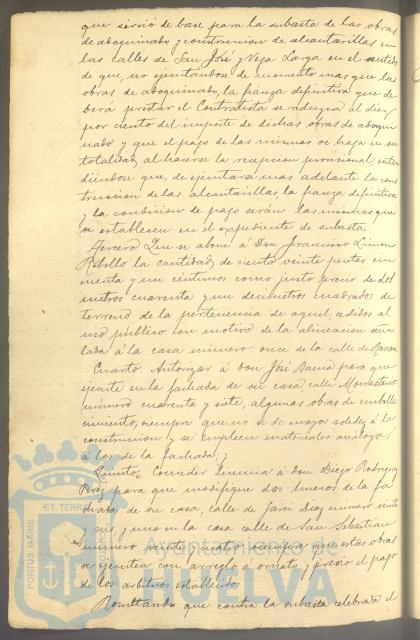 que sirvió de base para la subasta de las obras
de adoquinado y construccion de alcantarillas en
las calles de San José y Vega Larga en el sentido
de que, no ejecutandose de momento mas que las
obras de adoquinado, la fianza definitiva que de
berá prestar el Contratista se reduzca al diez
por ciento del importe de dichas obras de adoqui
nado y que el pago de las mismas se haga en su
totalidad al hacerse la recepcion provisional, enten
diéndose que, de ejecutarse mas adelante la cons
truccion de las alcantarillas, la fianza definitiva
y la condicion de pago serán las mismas que
se establecen en el expediente de subasta.
Tercero Que se abone a Don Francisco Limon
Rebollo la cantidad de ciento veinte pesetas cin
cuenta y un céntimos como justo precio de dos
metros cuarenta y un decimetros cuadrados de
terreno de la pertenencia de aquel, cedidos al
uso público con motivo de la alineacion seña
lada á la casa numero once de la calle de Rascon
Cuarto. Autorizar á don José Baena para que
ejecute en la fachada de su casa, calle Monasterio
número cuarenta y siete, algunas obras de embelle
cimiento, siempre que no se dé mayor solidez á la
construccion y se empleen materiales análogos
á los de la fachada, y
Quinto. Conceder licencia á don Diego Rodriguez
Perez para que modifique dos huecos de la fa
chada de su casa, calle de Garci Diaz número veinte
y seis, y uno en la casa calle de San Sebastian
número veinte y cuatro siempre que estas obras
se ejecuten con arreglo á ornato, y previo el pago
de los arbitrios establecidos.
Resultando que contra la subasta celebrada el
PORTUS MARIS
ET TERRAE
Ayuntamiento de
HUELVA